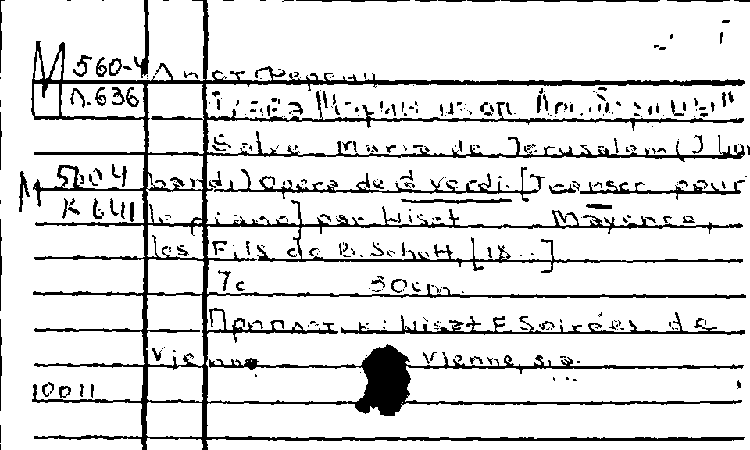 М 560-4 Лист, Ференц
Л.636
Salve Maria de Jerusalem (I Lom
М 560 4 bardi) Opera de G. Verdi. [Transcr. pour
К 641 le piano] par Liszt Mayence,
les Fils de B. Schott, [18..]
7с 30cm.
Приплет. к: Liszt F. Soirées de
Vienne. Vienne, s.a.
10011